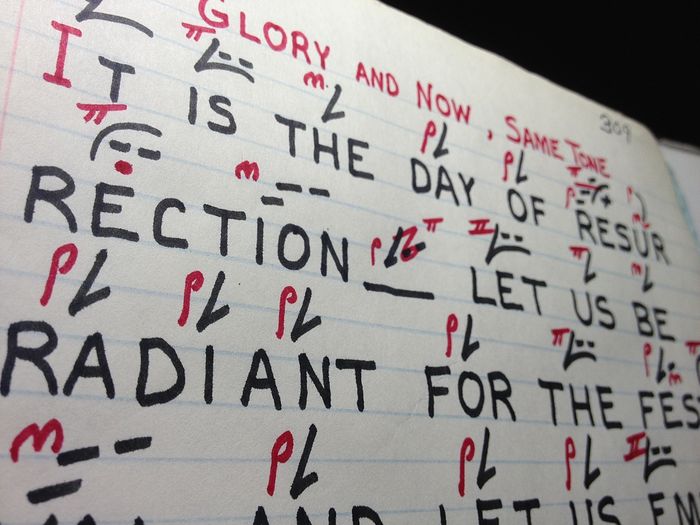 GLORY AND NOW, SAME TONE
309
IT IS THE DAY OF RESUR
RECTION — LET US BE
RADIANT FOR THE FES
AND LET US EM